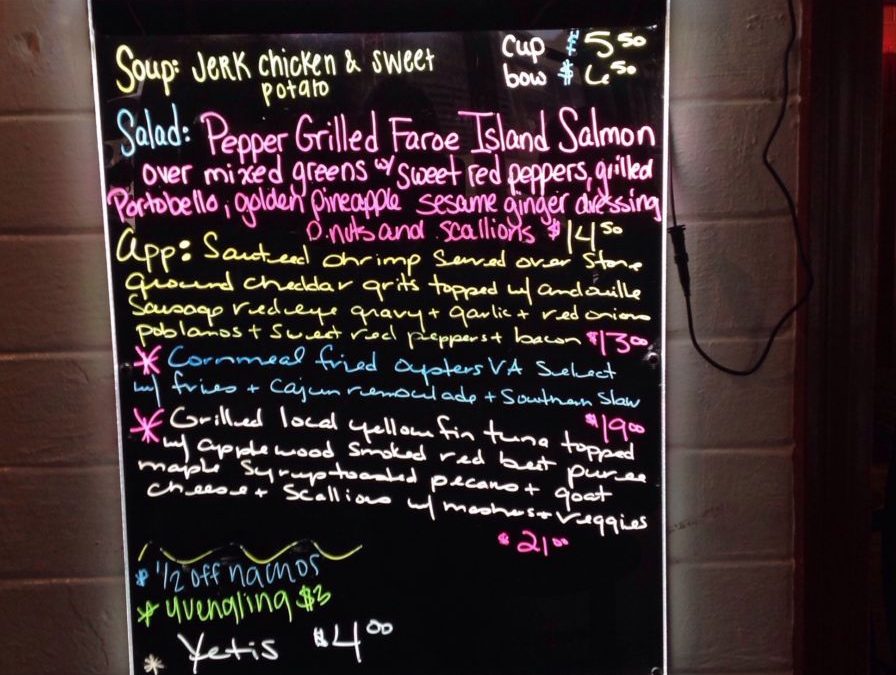 Soup: Jerk chicken & sweet potato
Cup $5.50
bow $6.50
Salad: Pepper Grilled Faroe Island Salmon
over mixed greens w/ sweet red peppers, grilled
Portobello, golden pineapple sesame ginger dressing
p.nuts and scallions $14.50
App: Sauteed shrimp served over Stone
ground cheddar grits topped w/ andouille
Sausage redeye gravy + garlic + red onions
poblanos + sweet red peppers + bacon $13.00
* Cornmeal fried oysters VA Select
w/ fries + Cajun remoulade + Southern Slaw
$19.00
* Grilled local yellowfin tuna topped
w/ applewood smoked red beet puree
maple syrup toasted pecans + goat
cheese + Scallions w/ mashers + veggies
$21.00
* 1/2 off nachos
* yuengling $3
* Yetis $4.00